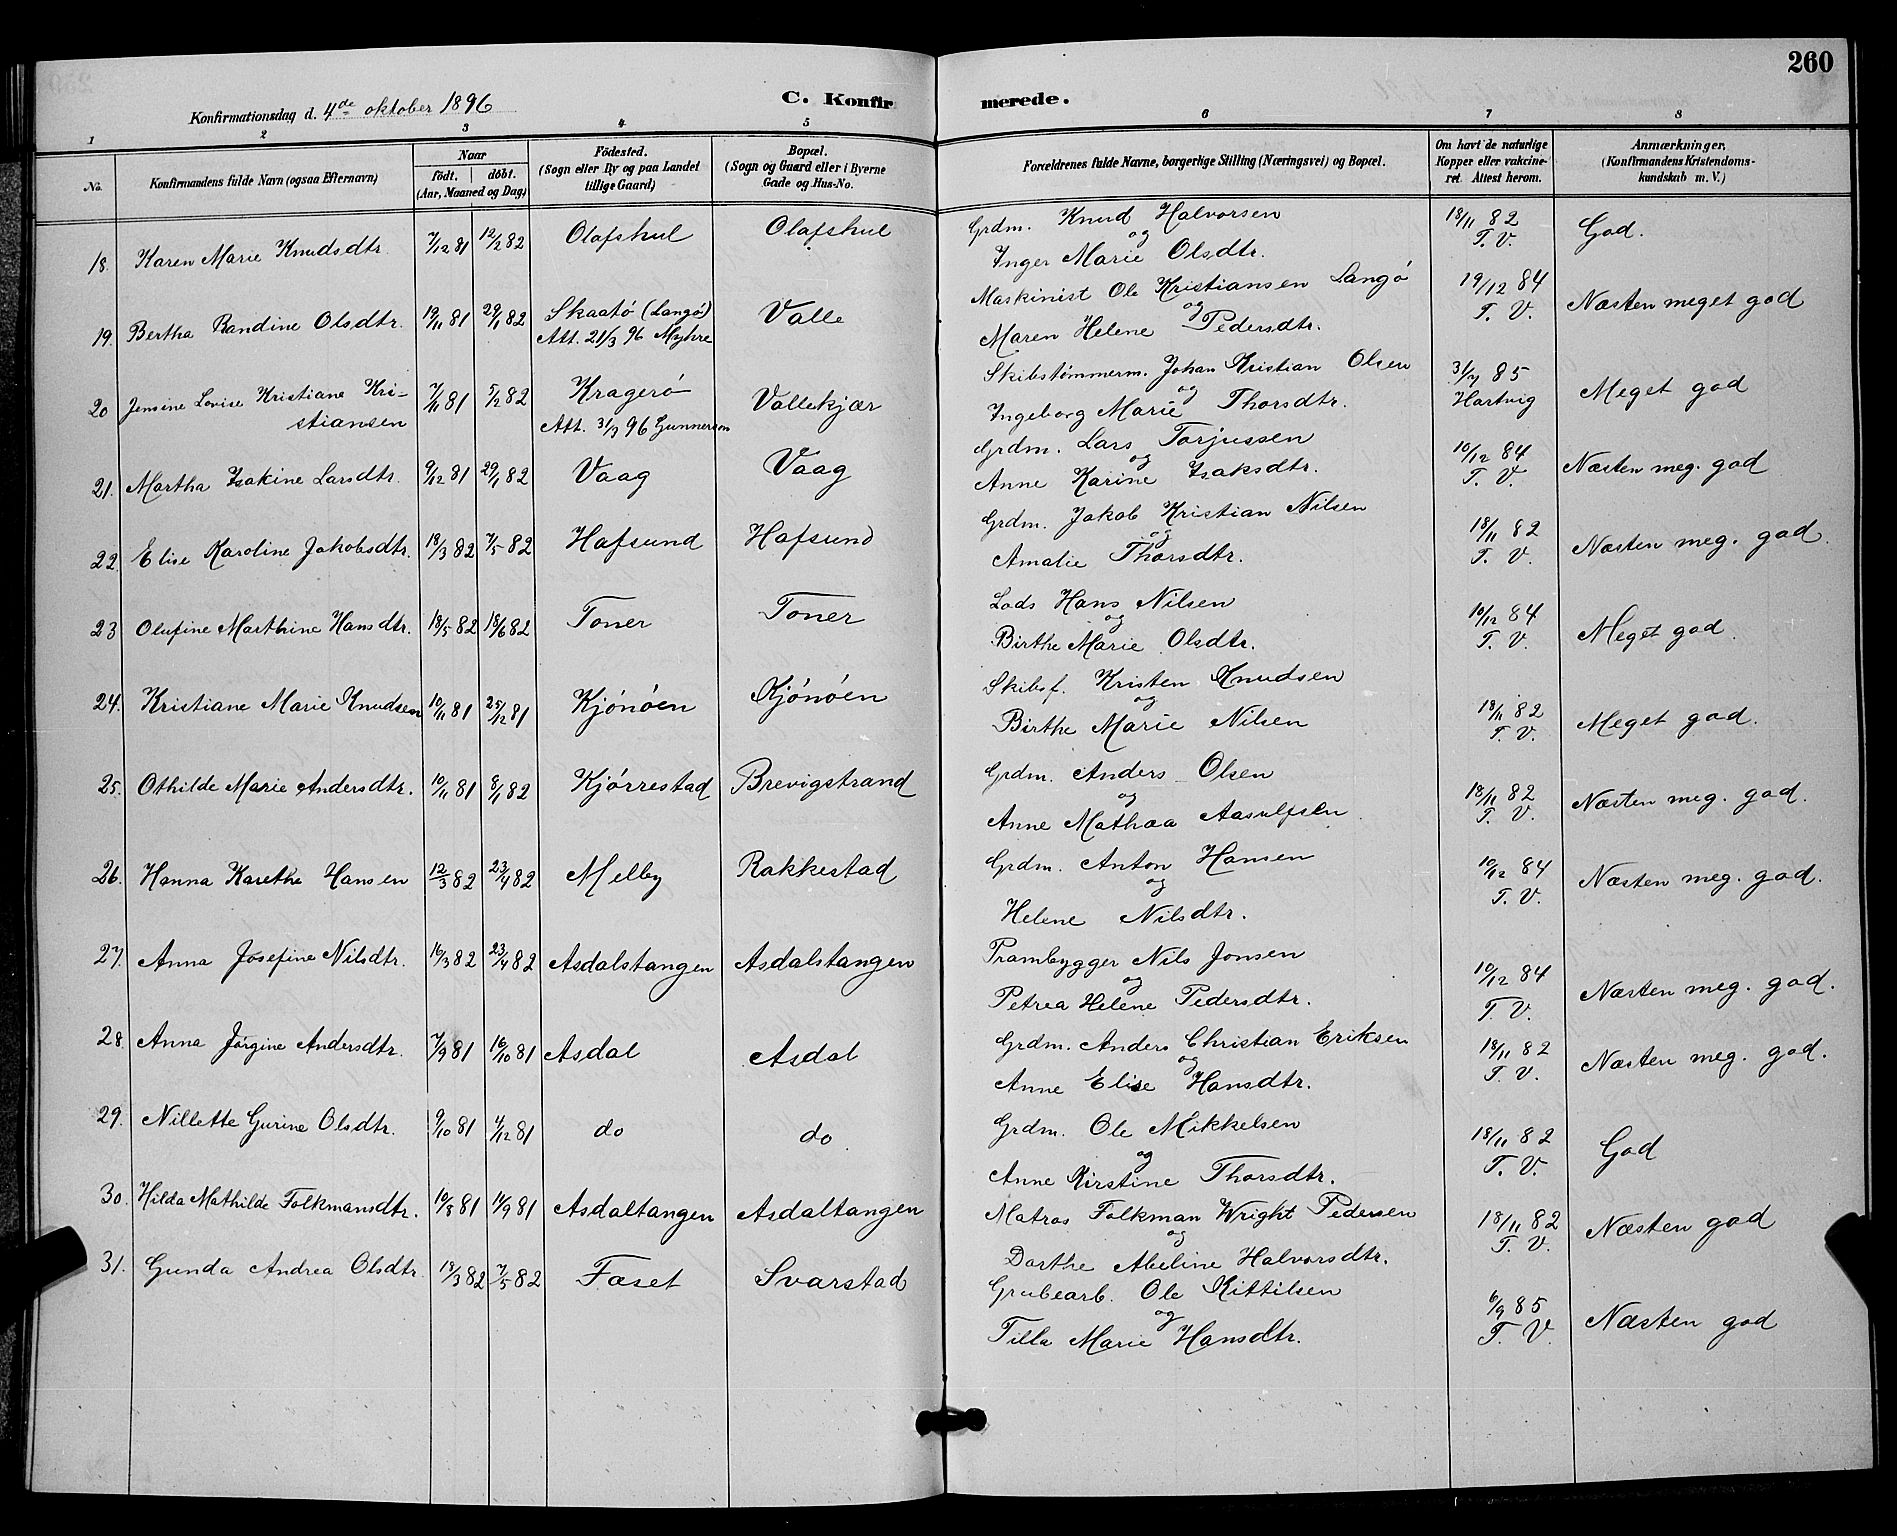 260
Konfirmationsdag d. 4de oktober 1896
C. Konfirmerede.
1 2 3 4 5 6 7 8
No.
Konfirmandens fulde Navn (ogsaa Efternavn)
Naar
født. døbt.
(Aar, Maaned og Dag)
Fødested.
(Sogn eller By og paa Landet
tillige Gaard)
Bopæl.
(Sogn og Gaard eller i Byerne
Gade og Hus-No.
Forældrenes fulde Navne, borgerlige Stilling (Næringsvei) og Bopæl.
Om havt de naturlige
Kopper eller vakcine-
ret. Attest herom.
Anmærkninger,
(Konfirmandens Kristendoms-
kundskab m. V.)
18. Karen Marie Knudsdtr. 7/12 81 12/2 82 Olafshul Olafshul Grdm. Knud Halvorsen 18/11 82 God.
og T. V.
Inger Marie Olsdtr.
19. Bertha Randine Olsdtr. 19/11 81 29/1 82 Skaatø (Langø) Valle Maskinist Ole Kristiansen Langø 19/12 84 Næsten meget god
Att. 21/3 96 Myhre og T. V.
Maren Helene Pedersdtr.
20 Jensine Lovise Kristiane Kri- 7/11 81 5/2 82 Kragerø Vallekjær Skibstømmerm. Johan Kristian Olsen 31/7 85 Meget god
stiansen Att. 31/3 96 Gunnersen og Hartvig
Ingeborg Marie Thorsdtr.
21. Martha Isakine Larsdtr. 9/12 81 29/1 82 Vaag Vaag Grdm. Lars Torjussen 10/12 84 Næsten meg. god
og T. V.
Anne Karine Isaksdtr.
22. Elise Karoline Jakobsdtr. 18/3 82 7/5 82 Hafsund Hafsund Grdm. Jakob Kristian Nilsen 18/11 82 Næsten meg. god.
og T. V.
Amalie Thorsdtr.
23 Olufine Marthine Hansdtr. 18/5 82 18/6 82 Toner Toner Lods Hans Nilsen 10/12 84 Meget god.
og T. V.
Birthe Marie Olsdtr.
24. Kristiane Marie Knudsen 10/11 81 25/12 81 Kjønøen Kjønøen Skibsf. Kristen Knudsen 18/11 82 Meget god.
og T. V.
Birthe Marie Nilsen
25. Othilde Marie Andersdtr. 10/11 81 8/1 82 Kjørrestad Brevigstrand Grdm. Anders Olsen 18/11 82 Næsten meg. god.
og T. V.
Anne Mathæa Aasulfsen
26. Hanna Karethe Hansen 12/3 82 23/4 82 Melby Rakkestad Grdm. Anton Hansen 10/12 84 Næsten meg. god.
og T. V.
Helene Nilsdtr.
27. Anna Josefine Nilsdtr. 16/3 82 23/4 82 Asdalstangen Asdalstangen Prambygger Nils Jonsen 10/12 84 Næsten meg. god.
og T. V.
Petrea Helene Pedersdtr.
28. Anna Jørgine Andersdtr. 7/9 81 16/10 81 Asdal Asdal Grdm. Anders Christian Eriksen 18/11 82 Næsten meg. god.
og T. V.
Anne Elise Hansdtr.
29. Nillette Gurine Olsdtr. 9/10 81 4/12 81 do do Grdm. Ole Mikkelsen 18/11 82 God
og T. V.
Anne Kirstine Thorsdtr.
30. Hilda Mathilde Folkmansdtr. 10/8 81 11/9 81 Asdaltangen Asdaltangen Matros Folkman Wright Pedersen 18/11 82 Næsten god
og T. V.
Dorthe Abeline Halvorsdtr.
31. Gunda Andrea Olsdtr. 13/3 82 7/5 82 Foset Svarstad Grubearb. Ole Kittilsen 6/9 85 Næsten god
og T. V.
Tilla Marie Hansdtr.